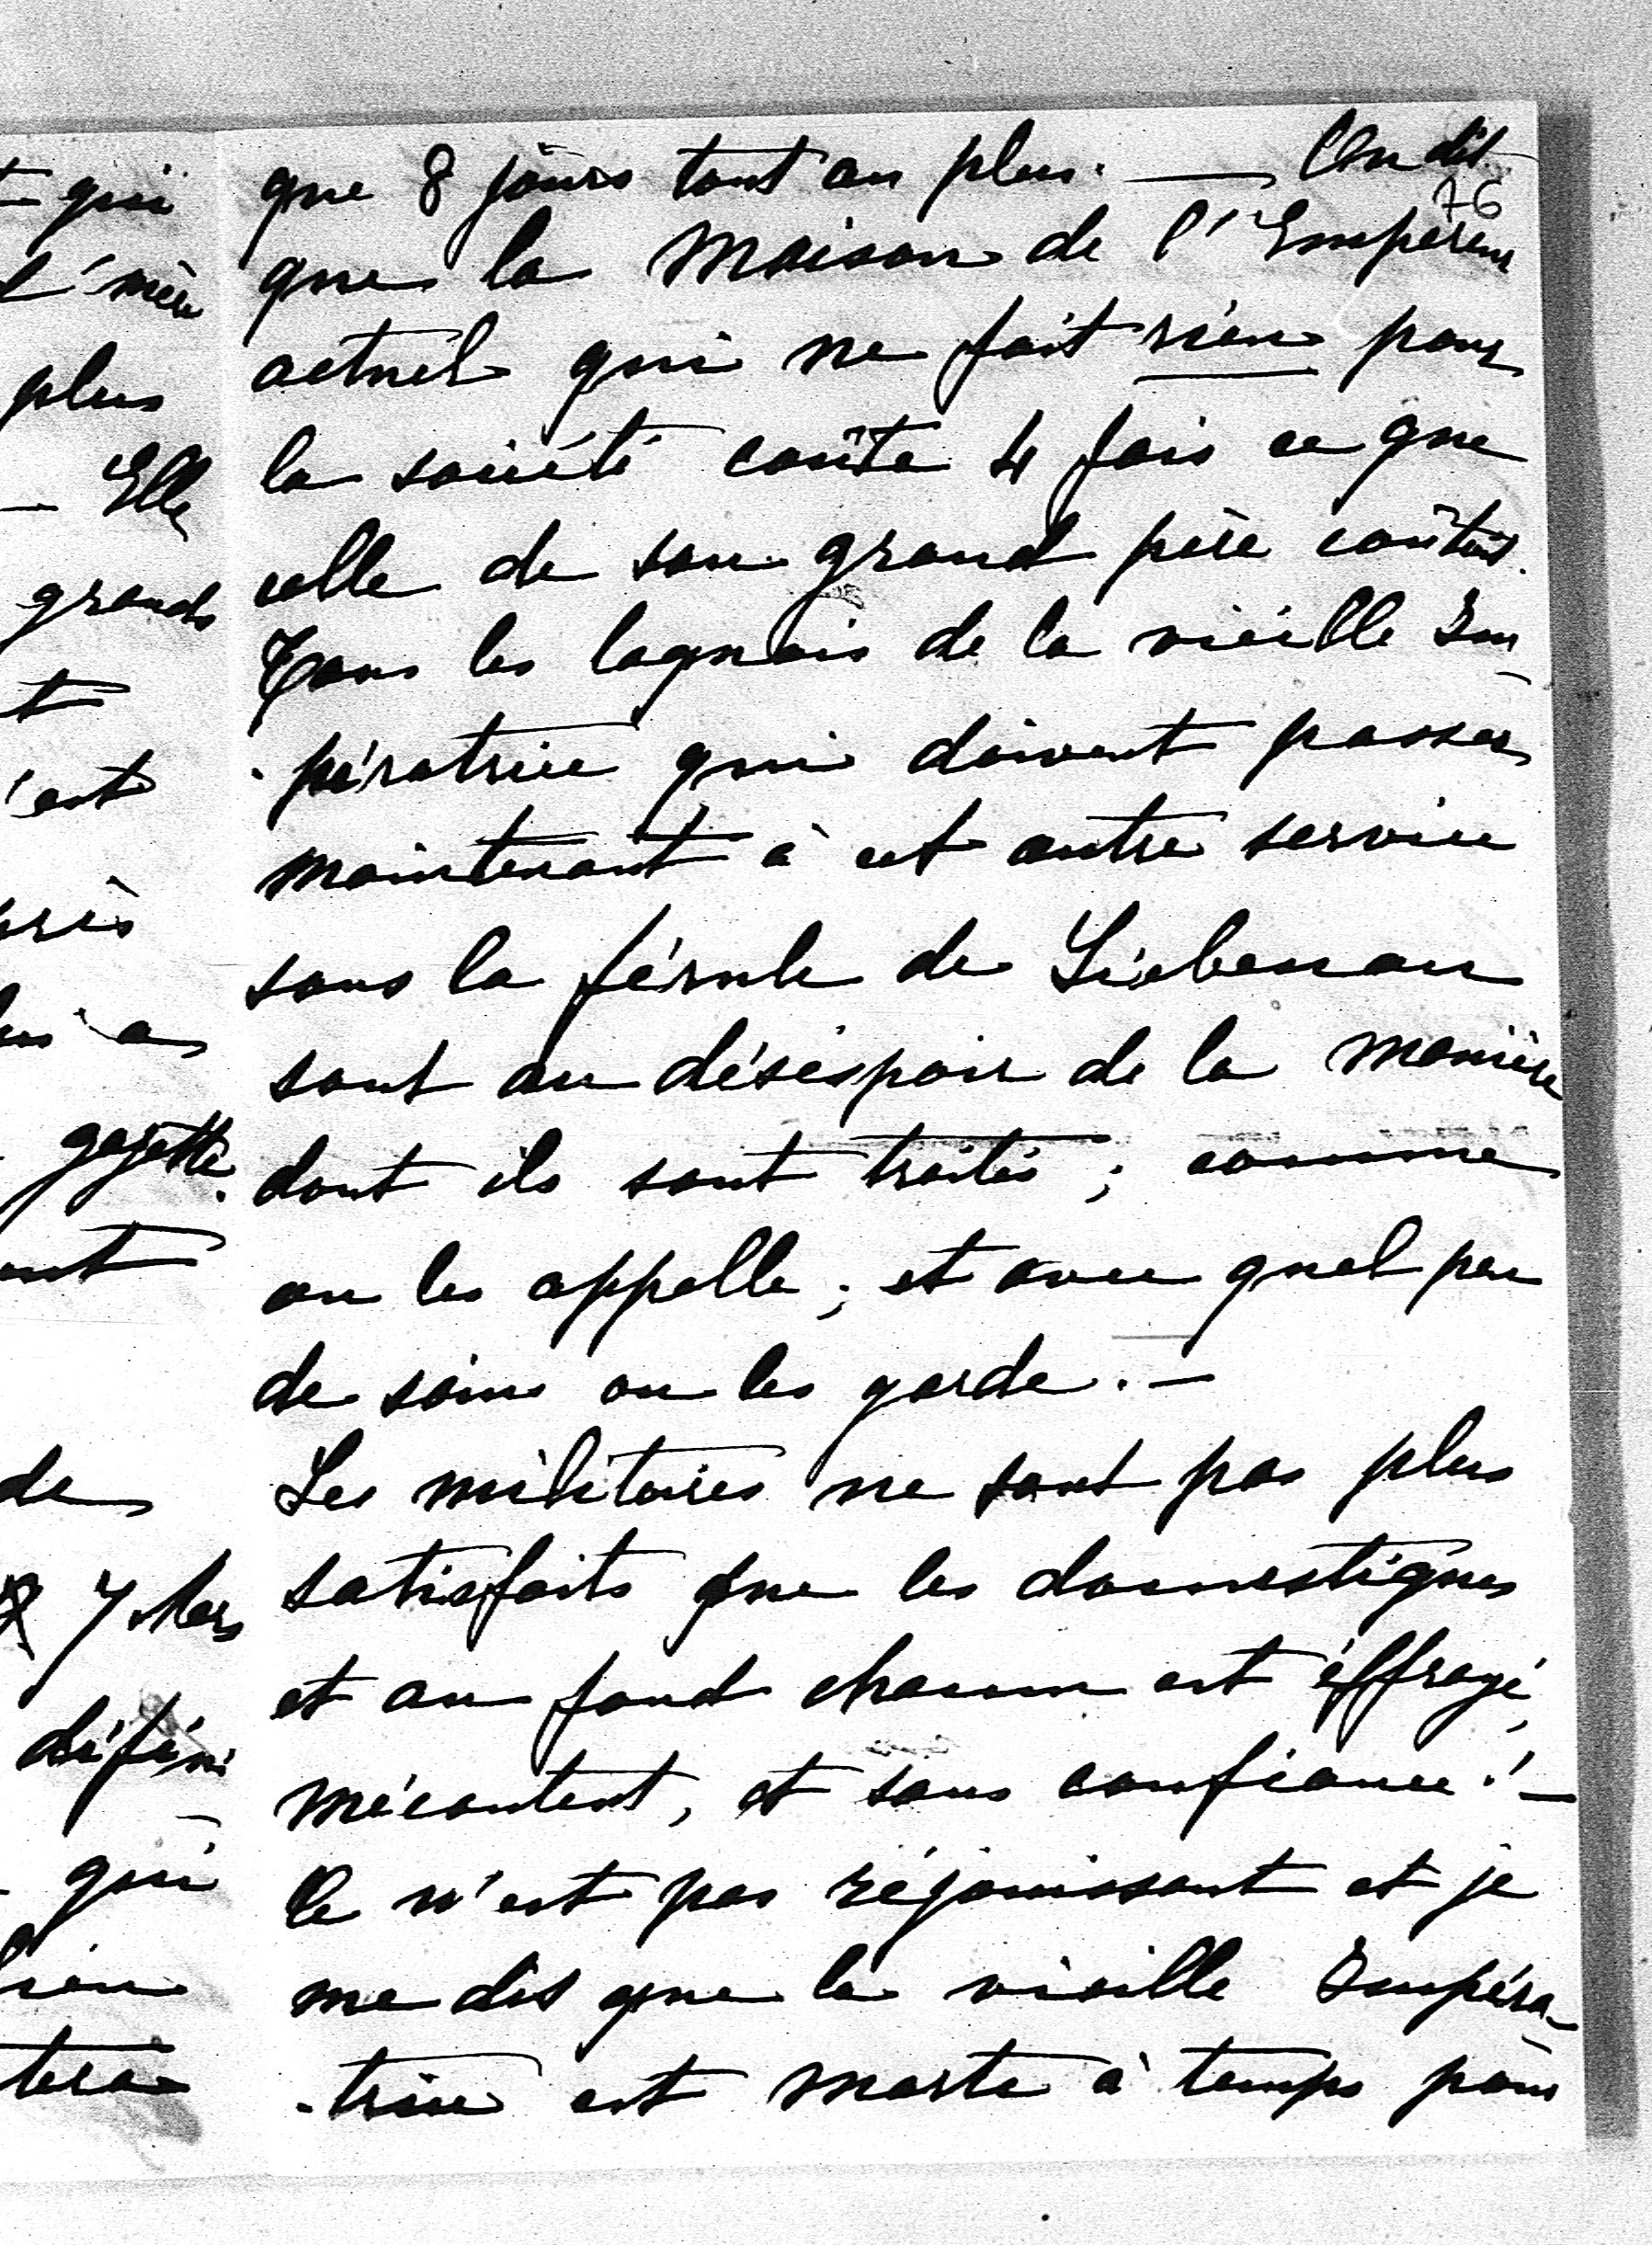 que 8 jours tout au plus. — On dit
76
que la Maison de l'Empereur
actuel qui ne fait rien pour
la société coûte 4 fois ce que
celle de son grand père coûtait.
Tous les laquais de la vieille Im-
-pératrice qui doivent passer
maintenant à cet autre service
sous la férule de Liebenau
sont au désespoir de la manière
dont ils sont traités ; comme
on les appelle ; et avec quel peu
de soins on les garde. —
Les militaires ne sont pas plus
satisfaits que les domestiques
et au fond chacun est éffrayé,
mécontent, et sans confiance ! —
Ce n'est pas réjouissant et je
me dis que la vieille Impéra-
-trice est morte à temps pour
qui
plus
— Elle
grands
t
'est
a
gazette.
de
qui